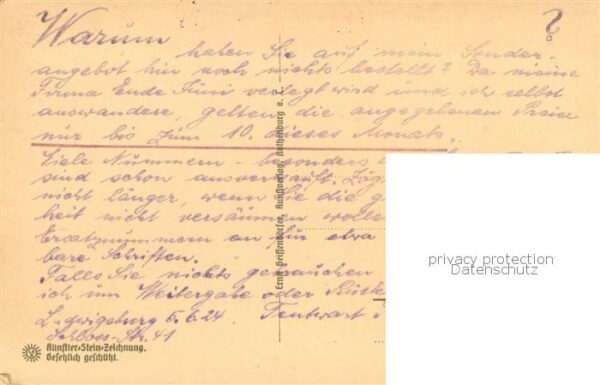 Warum ?
haben Sie auf mein Sonder-
angebot hin noch nichts bestellt? Da meine
Firma Ende Juni verlegt wird und ich selbst
auswandere, gelten die angegebenen Preise
nur bis zum 10. dieses Monats.
Viele Nummern - besonders
sind schon ausverkauft.
nicht länger, wenn Sie die g
heit nicht versäumen wolle
Ersatznummern an für etwa
bare Schriften.
Falls Sie nichts gebrauchen
ich um Weitergabe oder Rück
Ludwigsburg 5.6.24
Schloss-Str. 41
Künstler-Stein-Zeichnung.
Gesetzlich geschützt.
Ernst Geissendörfer, Kunstverlag, Rothenburg o. T.
privacy protection
Datenschutz